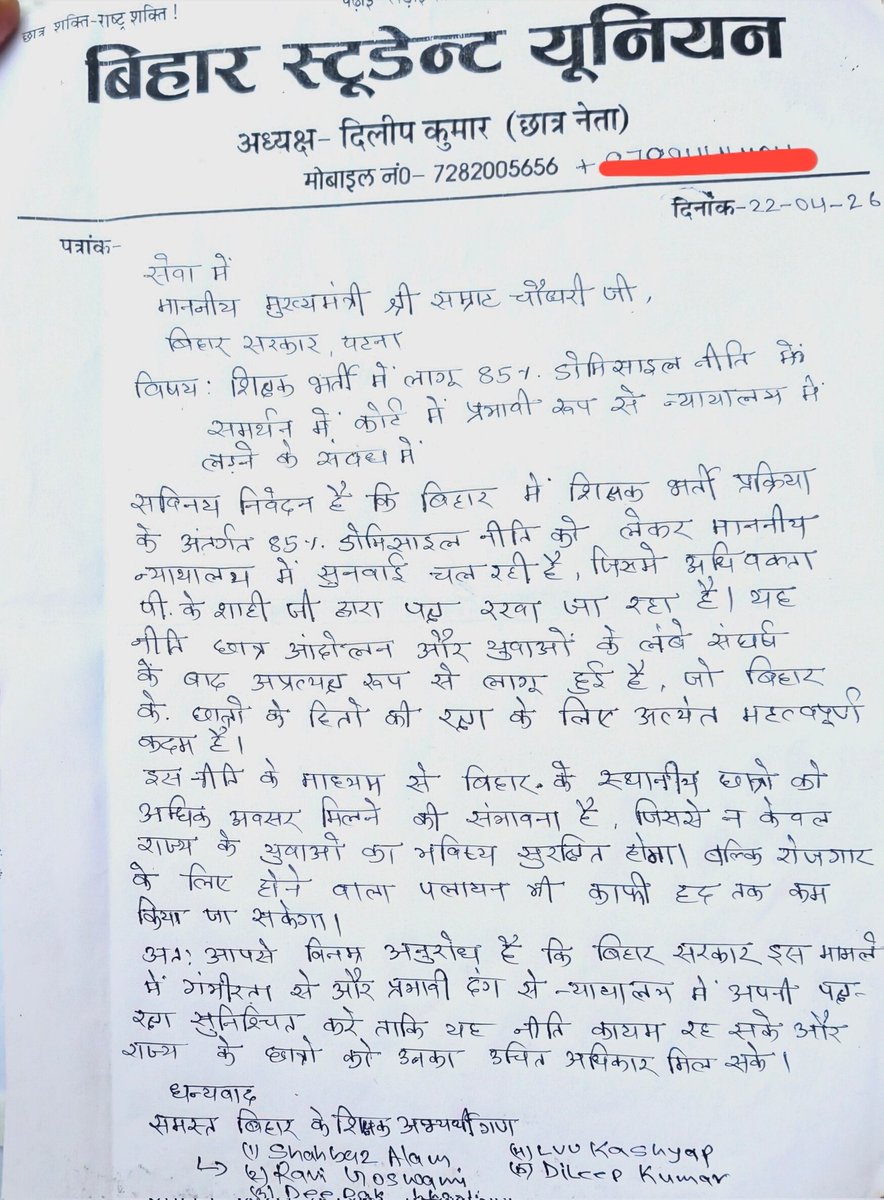 छात्र शक्ति-राष्ट्र शक्ति !
बिहार स्टूडेन्ट यूनियन
अध्यक्ष- दिलीप कुमार (छात्र नेता)
मोबाइल नं0- 7282005656 +
दिनाँक-22-04-26
पत्रांक-
सेवा में
माननीय मुख्यमंत्री श्री सम्राट चौधरी जी,
बिहार सरकार, पटना
विषय: शिक्षक भर्ती में लागू 85%. डोमिसाइल नीति के
समर्थन में कोर्ट में प्रभावी रूप से न्यायालय में
लड़ने के संबध में
सविनय निवेदन है कि बिहार में शिक्षक भर्ती प्रक्रिया
के अंतर्गत 85%. डोमिसाइल नीति को लेकर माननीय
न्यायालय में सुनवाई चल रही है, जिसमे अधिवक्ता
पी. के शाही जी द्वारा पक्ष रखा जा रहा है। यह
नीति छात्र आंदोलन और युवाओं के लंबे संघर्ष
के बाद अप्रत्यक्ष रूप से लागू हुई है, जो बिहार
के. छात्रों के हितों की रक्षा के लिए अत्यंत महत्वपूर्ण
कदम है।
इस नीति के माध्यम से बिहार के स्थानीय छात्रो को
अधिक अवसर मिलने की संभावना है, जिससे न केवल
राज्य के युवाओं का भविष्य सुरक्षित होगा। बल्कि रोजगार
के लिए होने वाला पलायन भी काफी हद तक कम
किया जा सकेगा।
अत: आपसे विनम्र अनुरोध है कि बिहार सरकार इस मामले
में गंभीरता से और प्रभावी ढंग से न्यायालय में अपनी पक्ष-
रक्षा सुनिश्चित करे ताकि यह नीति कायम रह सके और
राज्य के छात्रो को उनका उचित अधिकार मिल सके।
धन्यवाद
समस्त बिहार के शिक्षक अभ्यर्थीगण
(1) Shahbaz Alam
(2) Ravi Goswami
(3) Deepak
(4) LUV Kashyap
(5) Dileep Kumar